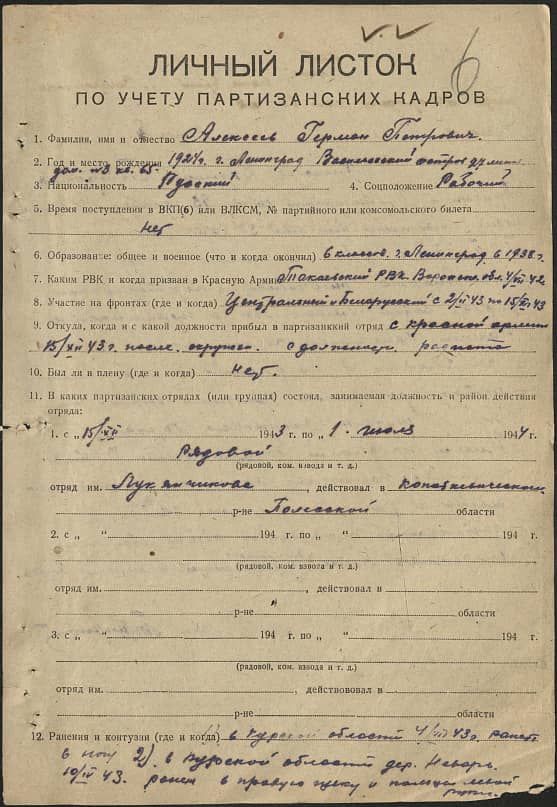 6
ЛИЧНЫЙ ЛИСТОК
ПО УЧЕТУ ПАРТИЗАНСКИХ КАДРОВ
1. Фамилия, имя и отчество Алексеев Герман Петрович.
2. Год и место рождения 1924г. г. Ленинград Васильевский остров
дом. №3 кв. 65.
3. Национальность Русский 4. Соцположение Рабочий
5. Время поступления в ВКП(б) или ВЛКСМ, № партийного или комсомольского билета
Нет
6. Образование: общее и военное (что и когда окончил) 6 классов. г. Ленинград в 1938 г.
7. Каким РВК и когда призван в Красную Армию РВК. Воронеж. обл.
8. Участие на фронтах (где и когда) Центральный и Белорусский с 2/II 43 по 15/XII 43
9. Откуда, когда и с какой должности прибыл в партизанкий отряд с красной армии
15/XII 43 г. после окружен. с должности
10. Был ли в плену (где и когда) нет.
11. В каких партизанских отрядах (или группах) состоял, занимаемая должность и район действия
отряда:
1. с „ 15/XII 1943 г. по „ 1. июля 1944 г.
Рядовой
(рядовой, ком. взвода и т. д.)
отряд им. Лукьянчикова, действовал в Копаткевичском
р-не Полесской области
2. с „ “ 194 г. по „ “ 194 г.
(рядовой, ком. взвода и т. д.)
отряд им. , действовал в
р-не области
3. с „ “ 194 г. по „ “ 194 г.
(рядовой, ком. взвода и т. д.)
отряд им. , действовал в
р-не области
12. Ранения и контузии (где и когда) 1) в Курской области 43 г. ранен
в ногу 2) в Курской области дер.
43. ранен в правую щеку и левой